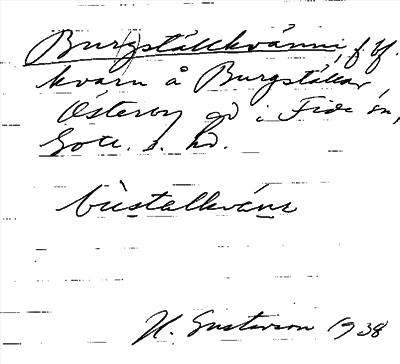 Burg(s)tälkkvänni, f. ff.
kvarn å Burgställar,
Österby gd i Fide sn,
Gotl. s. hd.
bùstalkväns
H. Gustavson 1938